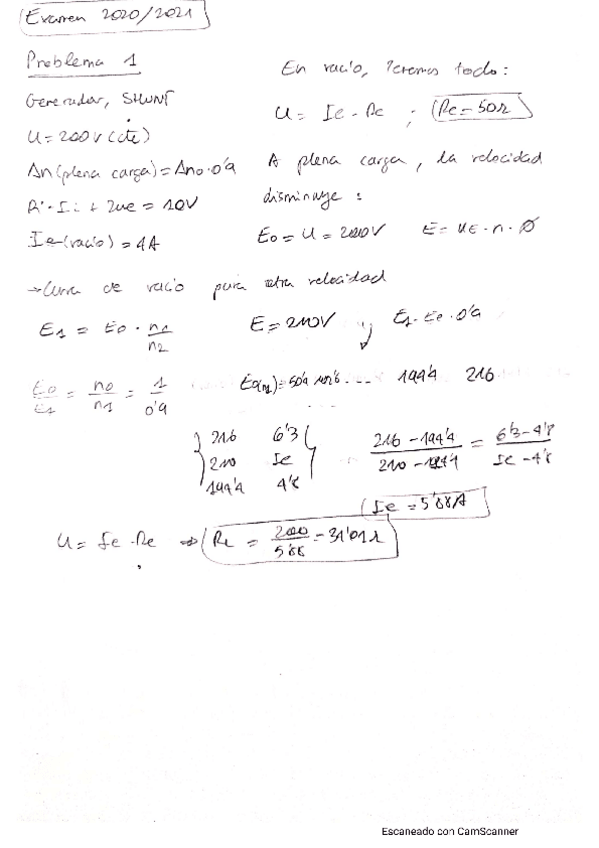 Examen 2020/2021
Problema 1
Generador, SHUNT
U = 200V (cte)
Δn (plena carga) = Δno · 0'9
Ri · Ii + 2ue = 10V
Ie (vacio) = 4A
En vacio, Tenemos todo:
U = Ie · Re ; Re = 50Ω
A plena carga, la velocidad
disminuye:
E0 = U = 200V E = KE · n · Ø
→ Curva de vacio para otra velocidad
E1 = E0 · n1/n2 E = 210V y E1 = E0 · 0'9
E0/E1 = n0/n1 = 1/0'9 E0(n1) = 50'4 108'6 .... 194'4 216
216 6'3
210 Ie
194'4 4'8
216 - 194'4 / 210 - 194'4 = 6'3 - 4'8 / Ie - 4'8
Ie = 5'88A
U = Ie · Re ⇒ Re = 200/5'88 = 34'01Ω
Escaneado con CamScanner